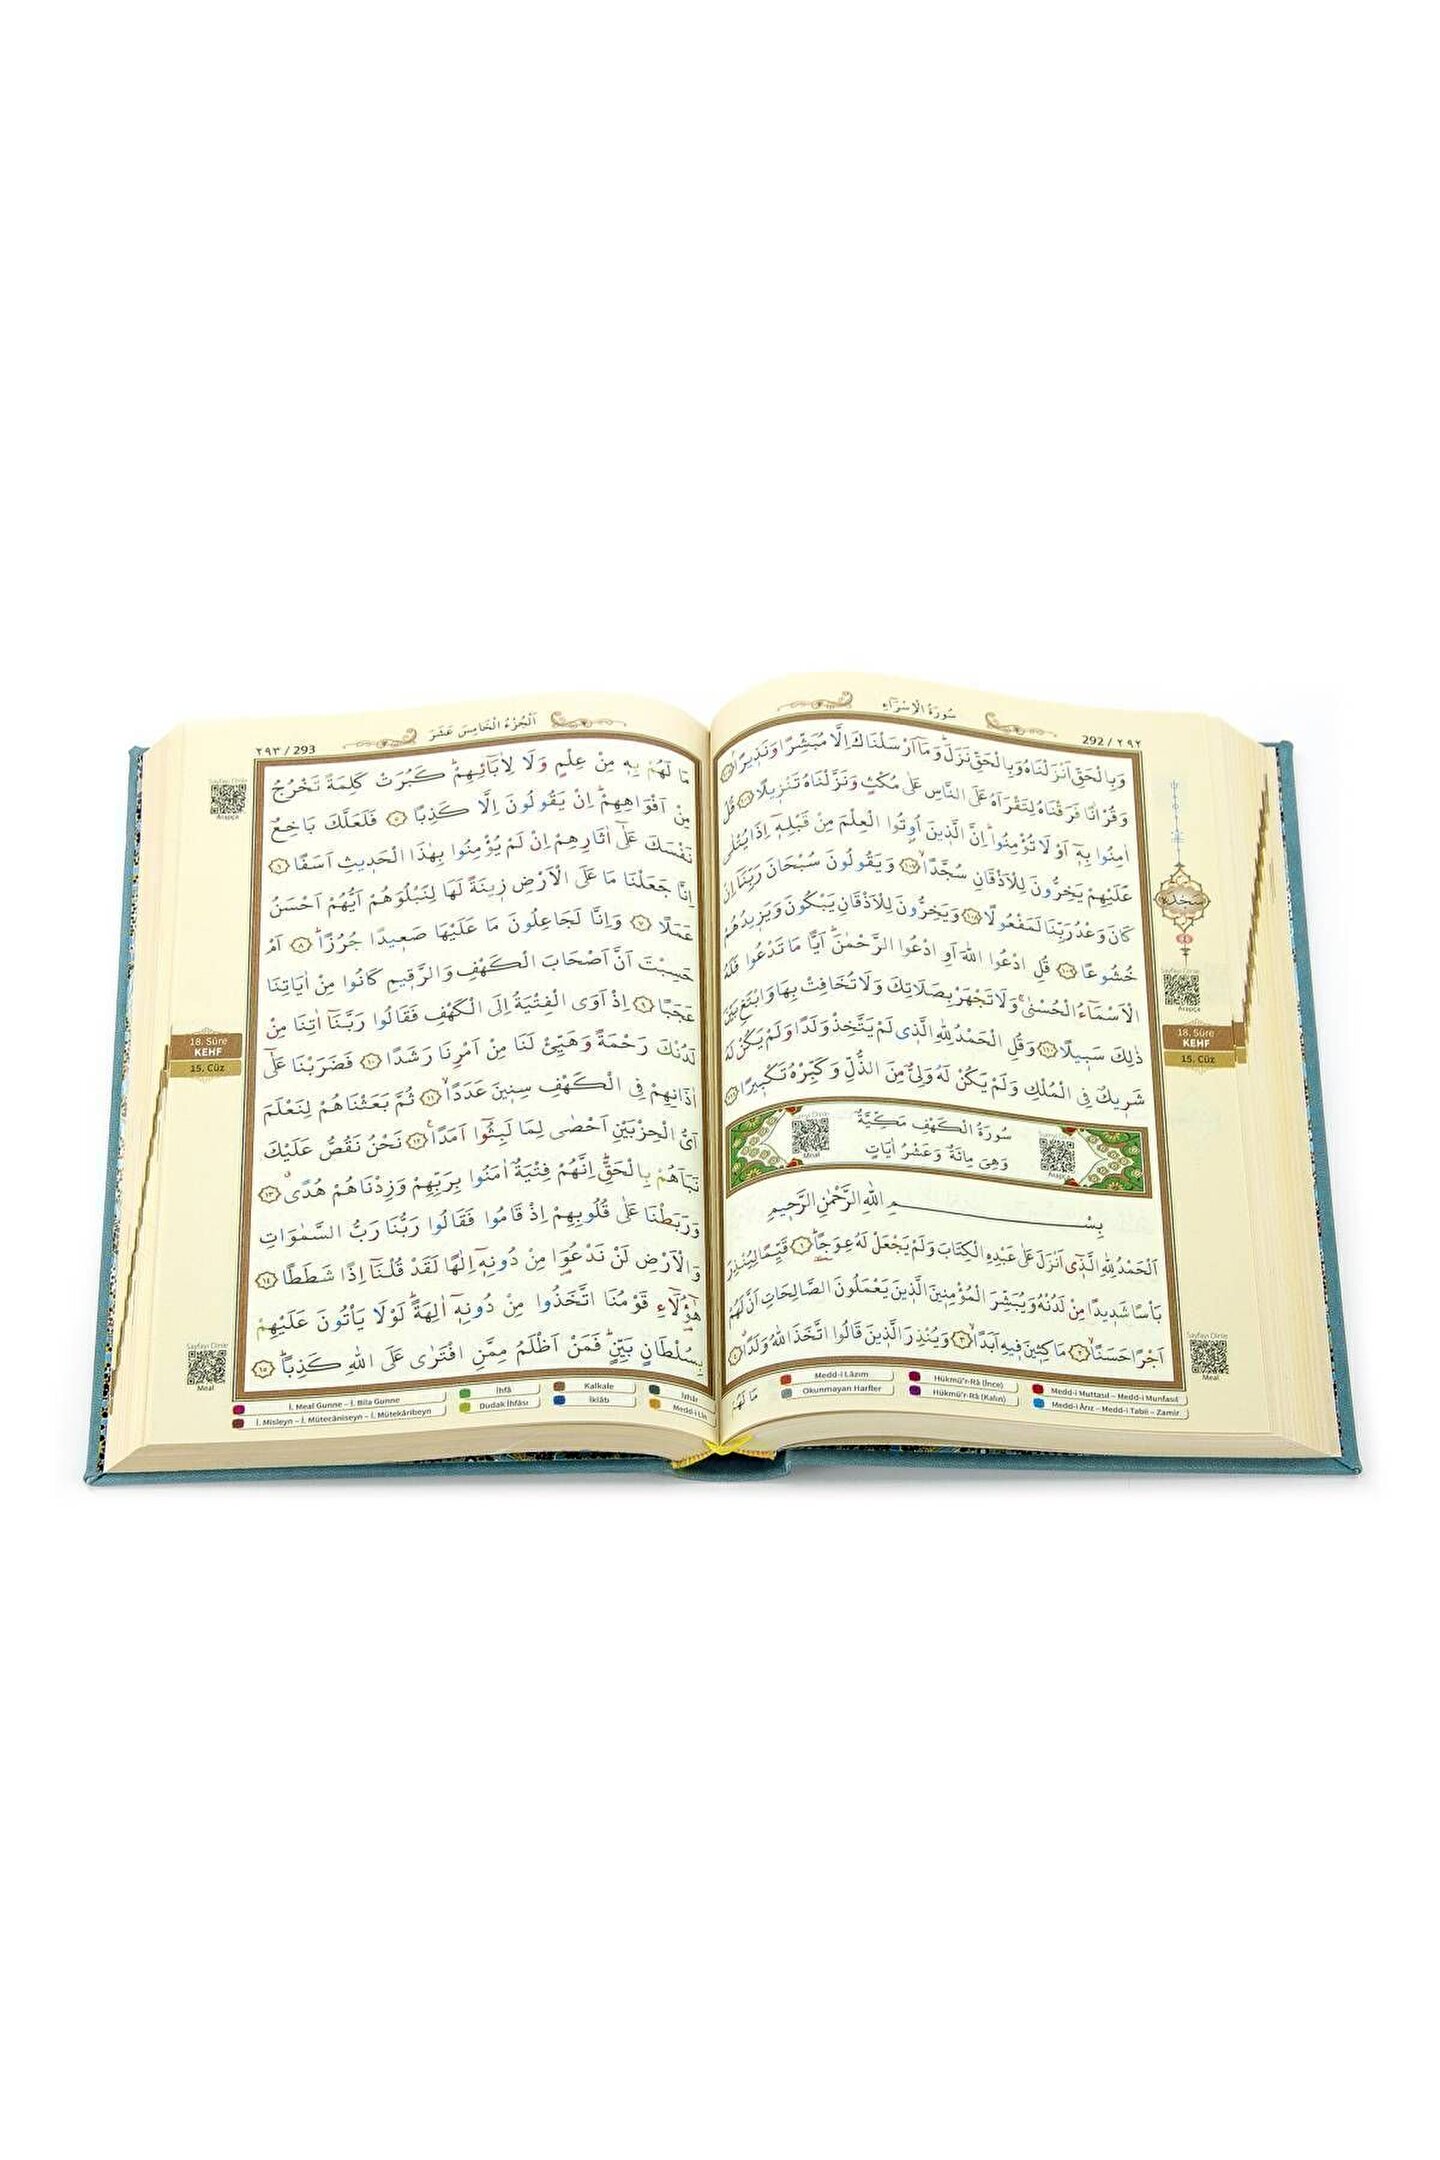 سُورَةُ الْاِسْرَٓاءِ
292 / ٢٩٢
وَبِالْحَقِّ اَنْزَلْنَاهُ وَبِالْحَقِّ نَزَلَۜ وَمَٓا اَرْسَلْنَاكَ اِلَّا مُبَشِّرًا وَنَذٖيرًاۢ ﴿١٠٥﴾
وَقُرْاٰنًا فَرَقْنَاهُ لِتَقْرَاَهُ عَلَى النَّاسِ عَلٰى مُكْثٍ وَنَزَّلْنَاهُ تَنْزٖيلًا ﴿١٠٦﴾ قُلْ
اٰمِنُوا بِهٖٓ اَوْ لَا تُؤْمِنُواۜ اِنَّ الَّذٖينَ اُو۫تُوا الْعِلْمَ مِنْ قَبْلِهٖٓ اِذَا يُتْلٰى
عَلَيْهِمْ يَخِرُّونَ لِلْاَذْقَانِ سُجَّدًاۙ ﴿١٠٧﴾ وَيَقُولُونَ سُبْحَانَ رَبِّنَٓا اِنْ
كَانَ وَعْدُ رَبِّنَا لَمَفْعُولًا ﴿١٠٨﴾ وَيَخِرُّونَ لِلْاَذْقَانِ يَبْكُونَ وَيَزٖيدُهُمْ
خُشُوعًا ﴿١٠٩﴾ قُلِ ادْعُوا اللّٰهَ اَوِ ادْعُوا الرَّحْمٰنَۜ اَيًّا مَا تَدْعُوا فَلَهُ
الْاَسْمَٓاءُ الْحُسْنٰىۚ وَلَا تَجْهَرْ بِصَلَاتِكَ وَلَا تُخَافِتْ بِهَا وَابْتَغِ بَيْنَ
ذٰلِكَ سَبٖيلًا ﴿١١٠﴾ وَقُلِ الْحَمْدُ لِلّٰهِ الَّذٖى لَمْ يَتَّخِذْ وَلَدًا وَلَمْ يَكُنْ لَهُ
شَرٖيكٌ فِى الْمُلْكِ وَلَمْ يَكُنْ لَهُ وَلِىٌّ مِنَ الذُّلِّ وَكَبِّرْهُ تَكْبٖيرًا ﴿١١١﴾
سُورَةُ الْكَهْفِ مَكِّيَّةٌ
وَهِىَ مِائَةٌ وَعَشْرُ اٰيَاتٍ
Meal
Arapça
بِسْمِ اللّٰهِ الرَّحْمٰنِ الرَّحٖيمِ
اَلْحَمْدُ لِلّٰهِ الَّذٖٓى اَنْزَلَ عَلٰى عَبْدِهِ الْكِتَابَ وَلَمْ يَجْعَلْ لَهُ عِوَجًاۜ ﴿١﴾ قَيِّمًا لِيُنْذِرَ
بَاْسًا شَدٖيدًا مِنْ لَدُنْهُ وَيُبَشِّرَ الْمُؤْمِنٖينَ الَّذٖينَ يَعْمَلُونَ الصَّالِحَاتِ اَنَّ لَهُمْ
اَجْرًا حَسَنًاۙ ﴿٢﴾ مَاكِثٖينَ فٖيهِ اَبَدًاۙ ﴿٣﴾ وَيُنْذِرَ الَّذٖينَ قَالُوا اتَّخَذَ اللّٰهُ وَلَدًاۗ ﴿٤﴾
مَا لَهُمْ
سجدة
Sayfayı Dinle
Arapça
18. Sûre
KEHF
15. Cüz
Sayfayı Dinle
Meal
Medd-i Lâzım
Hükmü'r-Râ (İnce)
Medd-i Muttasıl – Medd-i Munfasıl
Okunmayan Harfler
Hükmü'r-Râ (Kalın)
Medd-i Ârız – Medd-i Tabiî – Zamir
اَلْجُزْءُ الْخَامِسَ عَشَرَ
٢٩٣ / 293
مَا لَهُمْ بِهٖ مِنْ عِلْمٍ وَلَا لِاٰبَٓائِهِمْۜ كَبُرَتْ كَلِمَةً تَخْرُجُ
مِنْ اَفْوَاهِهِمْۜ اِنْ يَقُولُونَ اِلَّا كَذِبًا ﴿٥﴾ فَلَعَلَّكَ بَاخِعٌ
نَفْسَكَ عَلٰٓى اٰثَارِهِمْ اِنْ لَمْ يُؤْمِنُوا بِهٰذَا الْحَدٖيثِ اَسَفًا ﴿٦﴾
اِنَّا جَعَلْنَا مَا عَلَى الْاَرْضِ زٖينَةً لَهَا لِنَبْلُوَهُمْ اَيُّهُمْ اَحْسَنُ
عَمَلًا ﴿٧﴾ وَاِنَّا لَجَاعِلُونَ مَا عَلَيْهَا صَعٖيدًا جُرُزًاۜ ﴿٨﴾ اَمْ
حَسِبْتَ اَنَّ اَصْحَابَ الْكَهْفِ وَالرَّقٖيمِ كَانُوا مِنْ اٰيَاتِنَا
عَجَبًا ﴿٩﴾ اِذْ اَوَى الْفِتْيَةُ اِلَى الْكَهْفِ فَقَالُوا رَبَّنَٓا اٰتِنَا مِنْ
لَدُنْكَ رَحْمَةً وَهَيِّئْ لَنَا مِنْ اَمْرِنَا رَشَدًا ﴿١٠﴾ فَضَرَبْنَا عَلٰٓى
اٰذَانِهِمْ فِى الْكَهْفِ سِنٖينَ عَدَدًاۙ ﴿١١﴾ ثُمَّ بَعَثْنَاهُمْ لِنَعْلَمَ
اَىُّ الْحِزْبَيْنِ اَحْصٰى لِمَا لَبِثُٓوا اَمَدًاۚ ﴿١٢﴾ نَحْنُ نَقُصُّ عَلَيْكَ
نَبَاَهُمْ بِالْحَقِّۜ اِنَّهُمْ فِتْيَةٌ اٰمَنُوا بِرَبِّهِمْ وَزِدْنَاهُمْ هُدًىۗ ﴿١٣﴾
وَرَبَطْنَا عَلٰى قُلُوبِهِمْ اِذْ قَامُوا فَقَالُوا رَبُّنَا رَبُّ السَّمٰوَاتِ
وَالْاَرْضِ لَنْ نَدْعُوَ۬ا مِنْ دُونِهٖٓ اِلٰهًا لَقَدْ قُلْنَٓا اِذًا شَطَطًا ﴿١٤﴾
هٰٓؤُ۬لَٓاءِ قَوْمُنَا اتَّخَذُوا مِنْ دُونِهٖٓ اٰلِهَةًۜ لَوْلَا يَاْتُونَ عَلَيْهِمْ
بِسُلْطَانٍ بَيِّنٍۜ فَمَنْ اَظْلَمُ مِمَّنِ افْتَرٰى عَلَى اللّٰهِ كَذِبًاۜ ﴿١٥﴾
Sayfayı Dinle
Arapça
18. Sûre
KEHF
15. Cüz
Sayfayı Dinle
Meal
İ. Meal Gunne – İ. Bila Gunne
İhfâ
Kalkale
İzhâr
İ. Misleyn – İ. Mütecâniseyn – İ. Mütekâribeyn
Dudak İhfâsı
İklâb
Medd-i Lîn